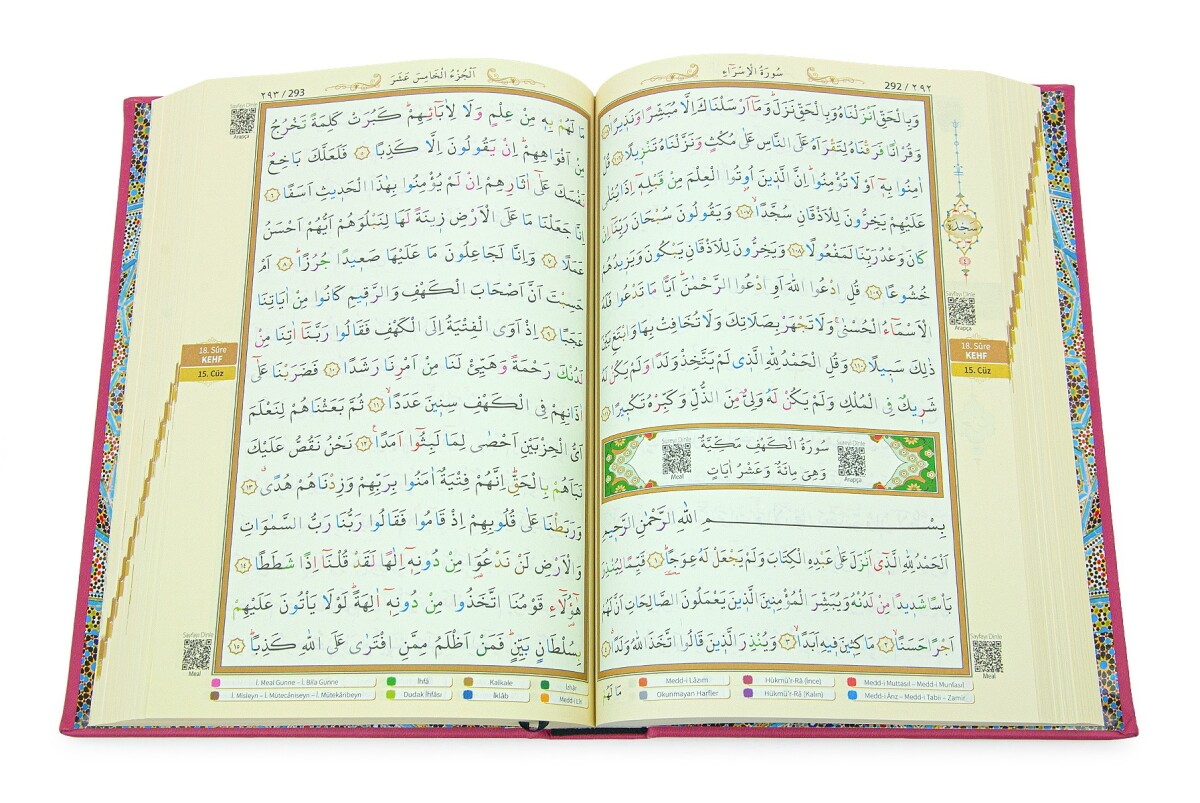 سُورَةُ الْاِسْرَٓاءِ
292 / ٢٩٢
وَبِالْحَقِّ اَنْزَلْنَاهُ وَبِالْحَقِّ نَزَلَۜ وَمَٓا اَرْسَلْنَاكَ اِلَّا مُبَشِّرًا وَنَذ۪يرًاۢ
وَقُرْاٰنًا فَرَقْنَاهُ لِتَقْرَاَهُ عَلَى النَّاسِ عَلٰى مُكْثٍ وَنَزَّلْنَاهُ تَنْز۪يلًا ﴿١٠٦﴾ قُلْ
اٰمِنُوا بِه۪ٓ اَوْ لَا تُؤْمِنُواۜ اِنَّ الَّذ۪ينَ اُو۫تُوا الْعِلْمَ مِنْ قَبْلِه۪ٓ اِذَا يُتْلٰى
عَلَيْهِمْ يَخِرُّونَ لِلْاَذْقَانِ سُجَّدًاۙ ﴿١٠٧﴾ وَيَقُولُونَ سُبْحَانَ رَبِّنَٓا اِنْ
كَانَ وَعْدُ رَبِّنَا لَمَفْعُولًا ﴿١٠٨﴾ وَيَخِرُّونَ لِلْاَذْقَانِ يَبْكُونَ وَيَز۪يدُهُمْ
خُشُوعًا ﴿١٠٩﴾ قُلِ ادْعُوا اللّٰهَ اَوِ ادْعُوا الرَّحْمٰنَۜ اَيًّا مَا تَدْعُوا فَلَهُ
الْاَسْمَٓاءُ الْحُسْنٰىۚ وَلَا تَجْهَرْ بِصَلَاتِكَ وَلَا تُخَافِتْ بِهَا وَابْتَغِ بَيْنَ
ذٰلِكَ سَب۪يلًا ﴿١١٠﴾ وَقُلِ الْحَمْدُ لِلّٰهِ الَّذ۪ي لَمْ يَتَّخِذْ وَلَدًا وَلَمْ يَكُنْ لَهُ
شَر۪يكٌ فِي الْمُلْكِ وَلَمْ يَكُنْ لَهُ وَلِيٌّ مِنَ الذُّلِّ وَكَبِّرْهُ تَكْب۪يرًا
سُورَةُ الْكَهْفِ مَكِّيَّةٌ
وَهِيَ مِائَةٌ وَعَشْرُ اٰيَاتٍ
Sureyi Dinle
Meal
Sureyi Dinle
Arapça
بِسْمِ اللّٰهِ الرَّحْمٰنِ الرَّح۪يمِ
اَلْحَمْدُ لِلّٰهِ الَّذ۪ٓي اَنْزَلَ عَلٰى عَبْدِهِ الْكِتَابَ وَلَمْ يَجْعَلْ لَهُ عِوَجًاۜ ﴿١﴾ قَيِّمًا لِيُنْذِرَ
بَأْسًا شَد۪يدًا مِنْ لَدُنْهُ وَيُبَشِّرَ الْمُؤْمِن۪ينَ الَّذ۪ينَ يَعْمَلُونَ الصَّالِحَاتِ اَنَّ لَهُمْ
اَجْرًا حَسَنًاۙ ﴿٢﴾ مَاكِث۪ينَ ف۪يهِ اَبَدًاۙ ﴿٣﴾ وَيُنْذِرَ الَّذ۪ينَ قَالُوا اتَّخَذَ اللّٰهُ وَلَدًاۗ ﴿٤﴾
مَا لَهُمْ
سَجْدَة
Sayfayı Dinle
Arapça
18. Sûre
KEHF
15. Cüz
Sayfayı Dinle
Meal
Medd-i Lâzım
Hükmü'r-Râ (İnce)
Medd-i Muttasıl – Medd-i Munfasıl
Okunmayan Harfler
Hükmü'r-Râ (Kalın)
Medd-i Ârız – Medd-i Tabii – Zamir
اَلْجُزْءُ الْخَامِسَ عَشَرَ
٢٩٣ / 293
مَا لَهُمْ بِه۪ مِنْ عِلْمٍ وَلَا لِاٰبَٓائِهِمْۜ كَبُرَتْ كَلِمَةً تَخْرُجُ
مِنْ اَفْوَاهِهِمْۜ اِنْ يَقُولُونَ اِلَّا كَذِبًا ﴿٥﴾ فَلَعَلَّكَ بَاخِعٌ
نَفْسَكَ عَلٰٓى اٰثَارِهِمْ اِنْ لَمْ يُؤْمِنُوا بِهٰذَا الْحَد۪يثِ اَسَفًا ﴿٦﴾
اِنَّا جَعَلْنَا مَا عَلَى الْاَرْضِ ز۪ينَةً لَهَا لِنَبْلُوَهُمْ اَيُّهُمْ اَحْسَنُ
عَمَلًا ﴿٧﴾ وَاِنَّا لَجَاعِلُونَ مَا عَلَيْهَا صَع۪يدًا جُرُزًاۜ ﴿٨﴾ اَمْ
حَسِبْتَ اَنَّ اَصْحَابَ الْكَهْفِ وَالرَّق۪يمِ كَانُوا مِنْ اٰيَاتِنَا
عَجَبًا ﴿٩﴾ اِذْ اَوَى الْفِتْيَةُ اِلَى الْكَهْفِ فَقَالُوا رَبَّنَٓا اٰتِنَا مِنْ
لَدُنْكَ رَحْمَةً وَهَيِّئْ لَنَا مِنْ اَمْرِنَا رَشَدًا ﴿١٠﴾ فَضَرَبْنَا عَلٰٓى
اٰذَانِهِمْ فِي الْكَهْفِ سِن۪ينَ عَدَدًاۙ ﴿١١﴾ ثُمَّ بَعَثْنَاهُمْ لِنَعْلَمَ
اَيُّ الْحِزْبَيْنِ اَحْصٰى لِمَا لَبِثُٓوا اَمَدًا۟ ﴿١٢﴾ نَحْنُ نَقُصُّ عَلَيْكَ
نَبَاَهُمْ بِالْحَقِّۜ اِنَّهُمْ فِتْيَةٌ اٰمَنُوا بِرَبِّهِمْ وَزِدْنَاهُمْ هُدًىۗ ﴿١٣﴾
وَرَبَطْنَا عَلٰى قُلُوبِهِمْ اِذْ قَامُوا فَقَالُوا رَبُّنَا رَبُّ السَّمٰوَاتِ
وَالْاَرْضِ لَنْ نَدْعُوَا۬ مِنْ دُونِه۪ٓ اِلٰهًا لَقَدْ قُلْنَٓا اِذًا شَطَطًا ﴿١٤﴾
هٰٓؤُ۬لَٓاءِ قَوْمُنَا اتَّخَذُوا مِنْ دُونِه۪ٓ اٰلِهَةًۜ لَوْلَا يَأْتُونَ عَلَيْهِمْ
بِسُلْطَانٍ بَيِّنٍۜ فَمَنْ اَظْلَمُ مِمَّنِ افْتَرٰى عَلَى اللّٰهِ كَذِبًاۜ ﴿١٥﴾
Sayfayı Dinle
Arapça
18. Sûre
KEHF
15. Cüz
Sayfayı Dinle
Meal
İ. Meal Gunne – İ. Bila Gunne
İhfâ
Kalkale
İzhâr
İ. Misleyn – İ. Mütecâniseyn – İ. Mütekâribeyn
Dudak İhfâsı
İklâb
Medd-i Lîn